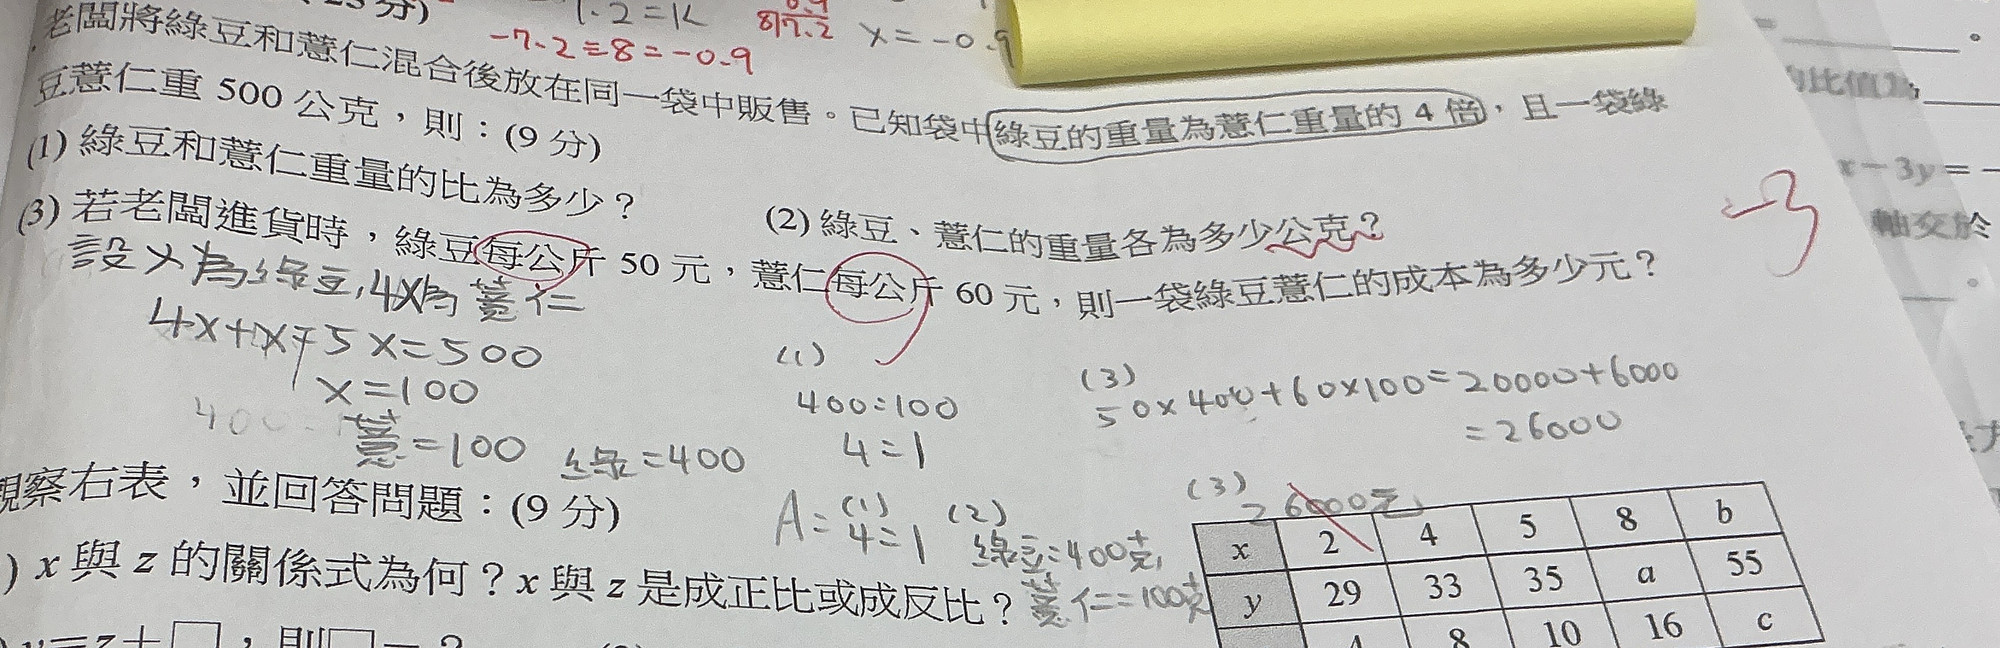 分)
1.2=K
8)7.2
0.9
x=-0.9
-7.2÷8=-0.9
老闆將綠豆和薏仁混合後放在同一袋中販售。已知袋中綠豆的重量為薏仁重量的 4 倍,且一袋綠
豆薏仁重 500 公克,則:(9 分)
(1) 綠豆和薏仁重量的比為多少?
(2) 綠豆、薏仁的重量各為多少公克?
(3) 若老闆進貨時,綠豆每公斤 50 元,薏仁每公斤 60 元,則一袋綠豆薏仁的成本為多少元?
-3
設x為綠豆,4x為薏仁
4x+x=5x=500
x=100
薏=100 綠=400
400
(1)
400:100
4:1
(3)
50×400+60×100=20000+6000
=26000
A:(1)
4:1
(2)
綠豆:400克,
薏仁:100克
(3)
26000元
觀察右表,並回答問題:(9 分)
) x 與 z 的關係式為何?x 與 z 是成正比或成反比?
y=z+□,則□=?
x 2 4 5 8 b
y 29 33 35 a 55
4 8 10 16 c
的比值為
x-3y=-
軸交於